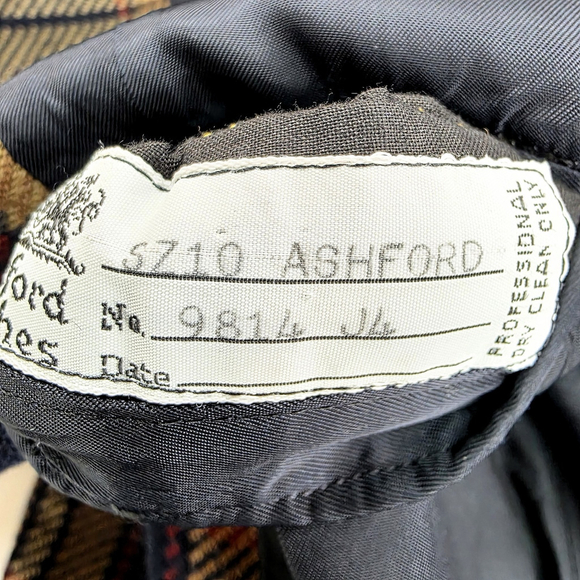 SZ10 ASHFORD
ford
No. 9814 J4
hes
Date
PROFESSIONAL
DRY CLEAN ONLY